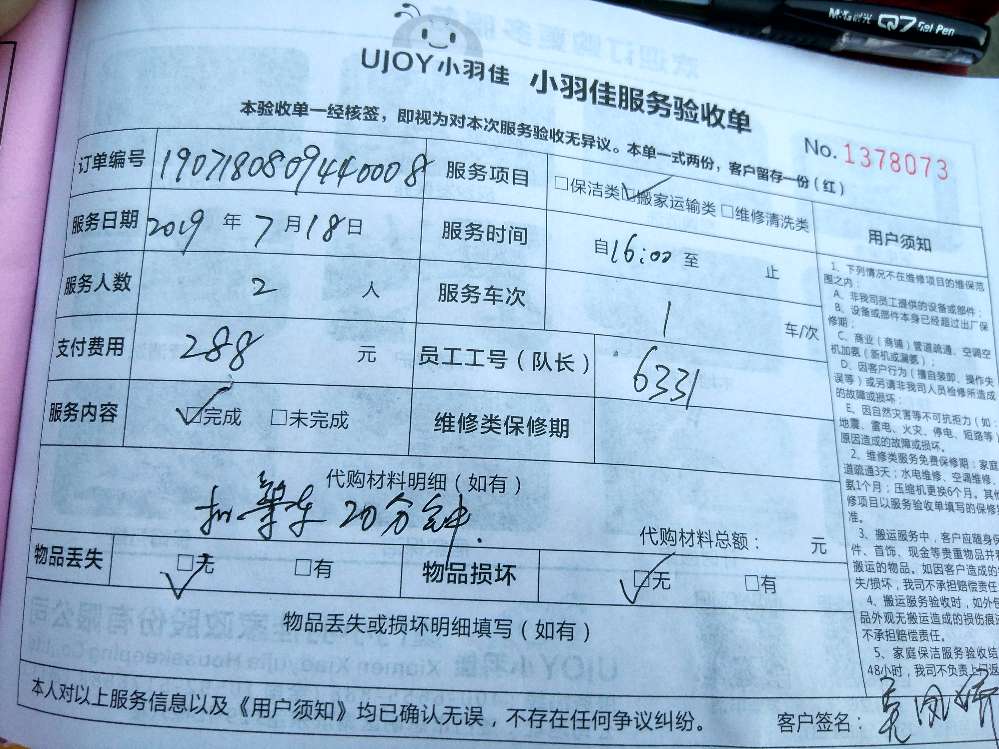 M&G晨光 Q7 Gel Pen
UJOY小羽佳 小羽佳服务验收单
本验收单一经核签，即视为对本次服务验收无异议。本单一式两份，客户留存一份（红）
No. 1378073
订单编号 1907180809440008 服务项目 □保洁类 □搬家运输类 □维修清洗类
服务日期 2019 年 7 月 18 日 服务时间 自 16:00 至 止
服务人数 2 人 服务车次 1 车/次
支付费用 288 元 员工工号（队长） 6331
服务内容 □完成 □未完成 维修类保修期
代购材料明细（如有）
等车 20分钟.
代购材料总额： 元
物品丢失 □无 □有 物品损坏 □无 □有
物品丢失或损坏明细填写（如有）
本人对以上服务信息以及《用户须知》均已确认无误，不存在任何争议纠纷。
客户签名：
用户须知
1、下列情况不在维修项目的维保范
围之内：
A、非我司员工提供的设备或部件；
B、设备或部件本身已经超过出厂保
修期；
C、商业（商铺）管道疏通、空调空
机加氨（新机或漏氨）；
D、因客户行为（擅自装卸、操作失
误等）或另请非我司人员检修所造成
的故障或损坏；
E、因自然灾害等不可抗拒力（如：
地震、雷电、火灾、停电、短路等）
原因造成的故障或损坏。
2、维修类服务免费保修期：家庭
道疏通3天；水电维修、空调维修、
氨1个月；压缩机更换6个月。其他
修项目以服务验收单填写的保修期
准。
3、搬运服务中，客户应随身保
件、首饰、现金等贵重物品并有
搬运的物品。如因客户造成的
失/损坏，我司不承担赔偿责任
4、搬运服务验收时，如外包
品外观无搬运造成的损伤痕迹
不承担赔偿责任。
5、家庭保洁服务验收结
48小时，我司不负责上门返